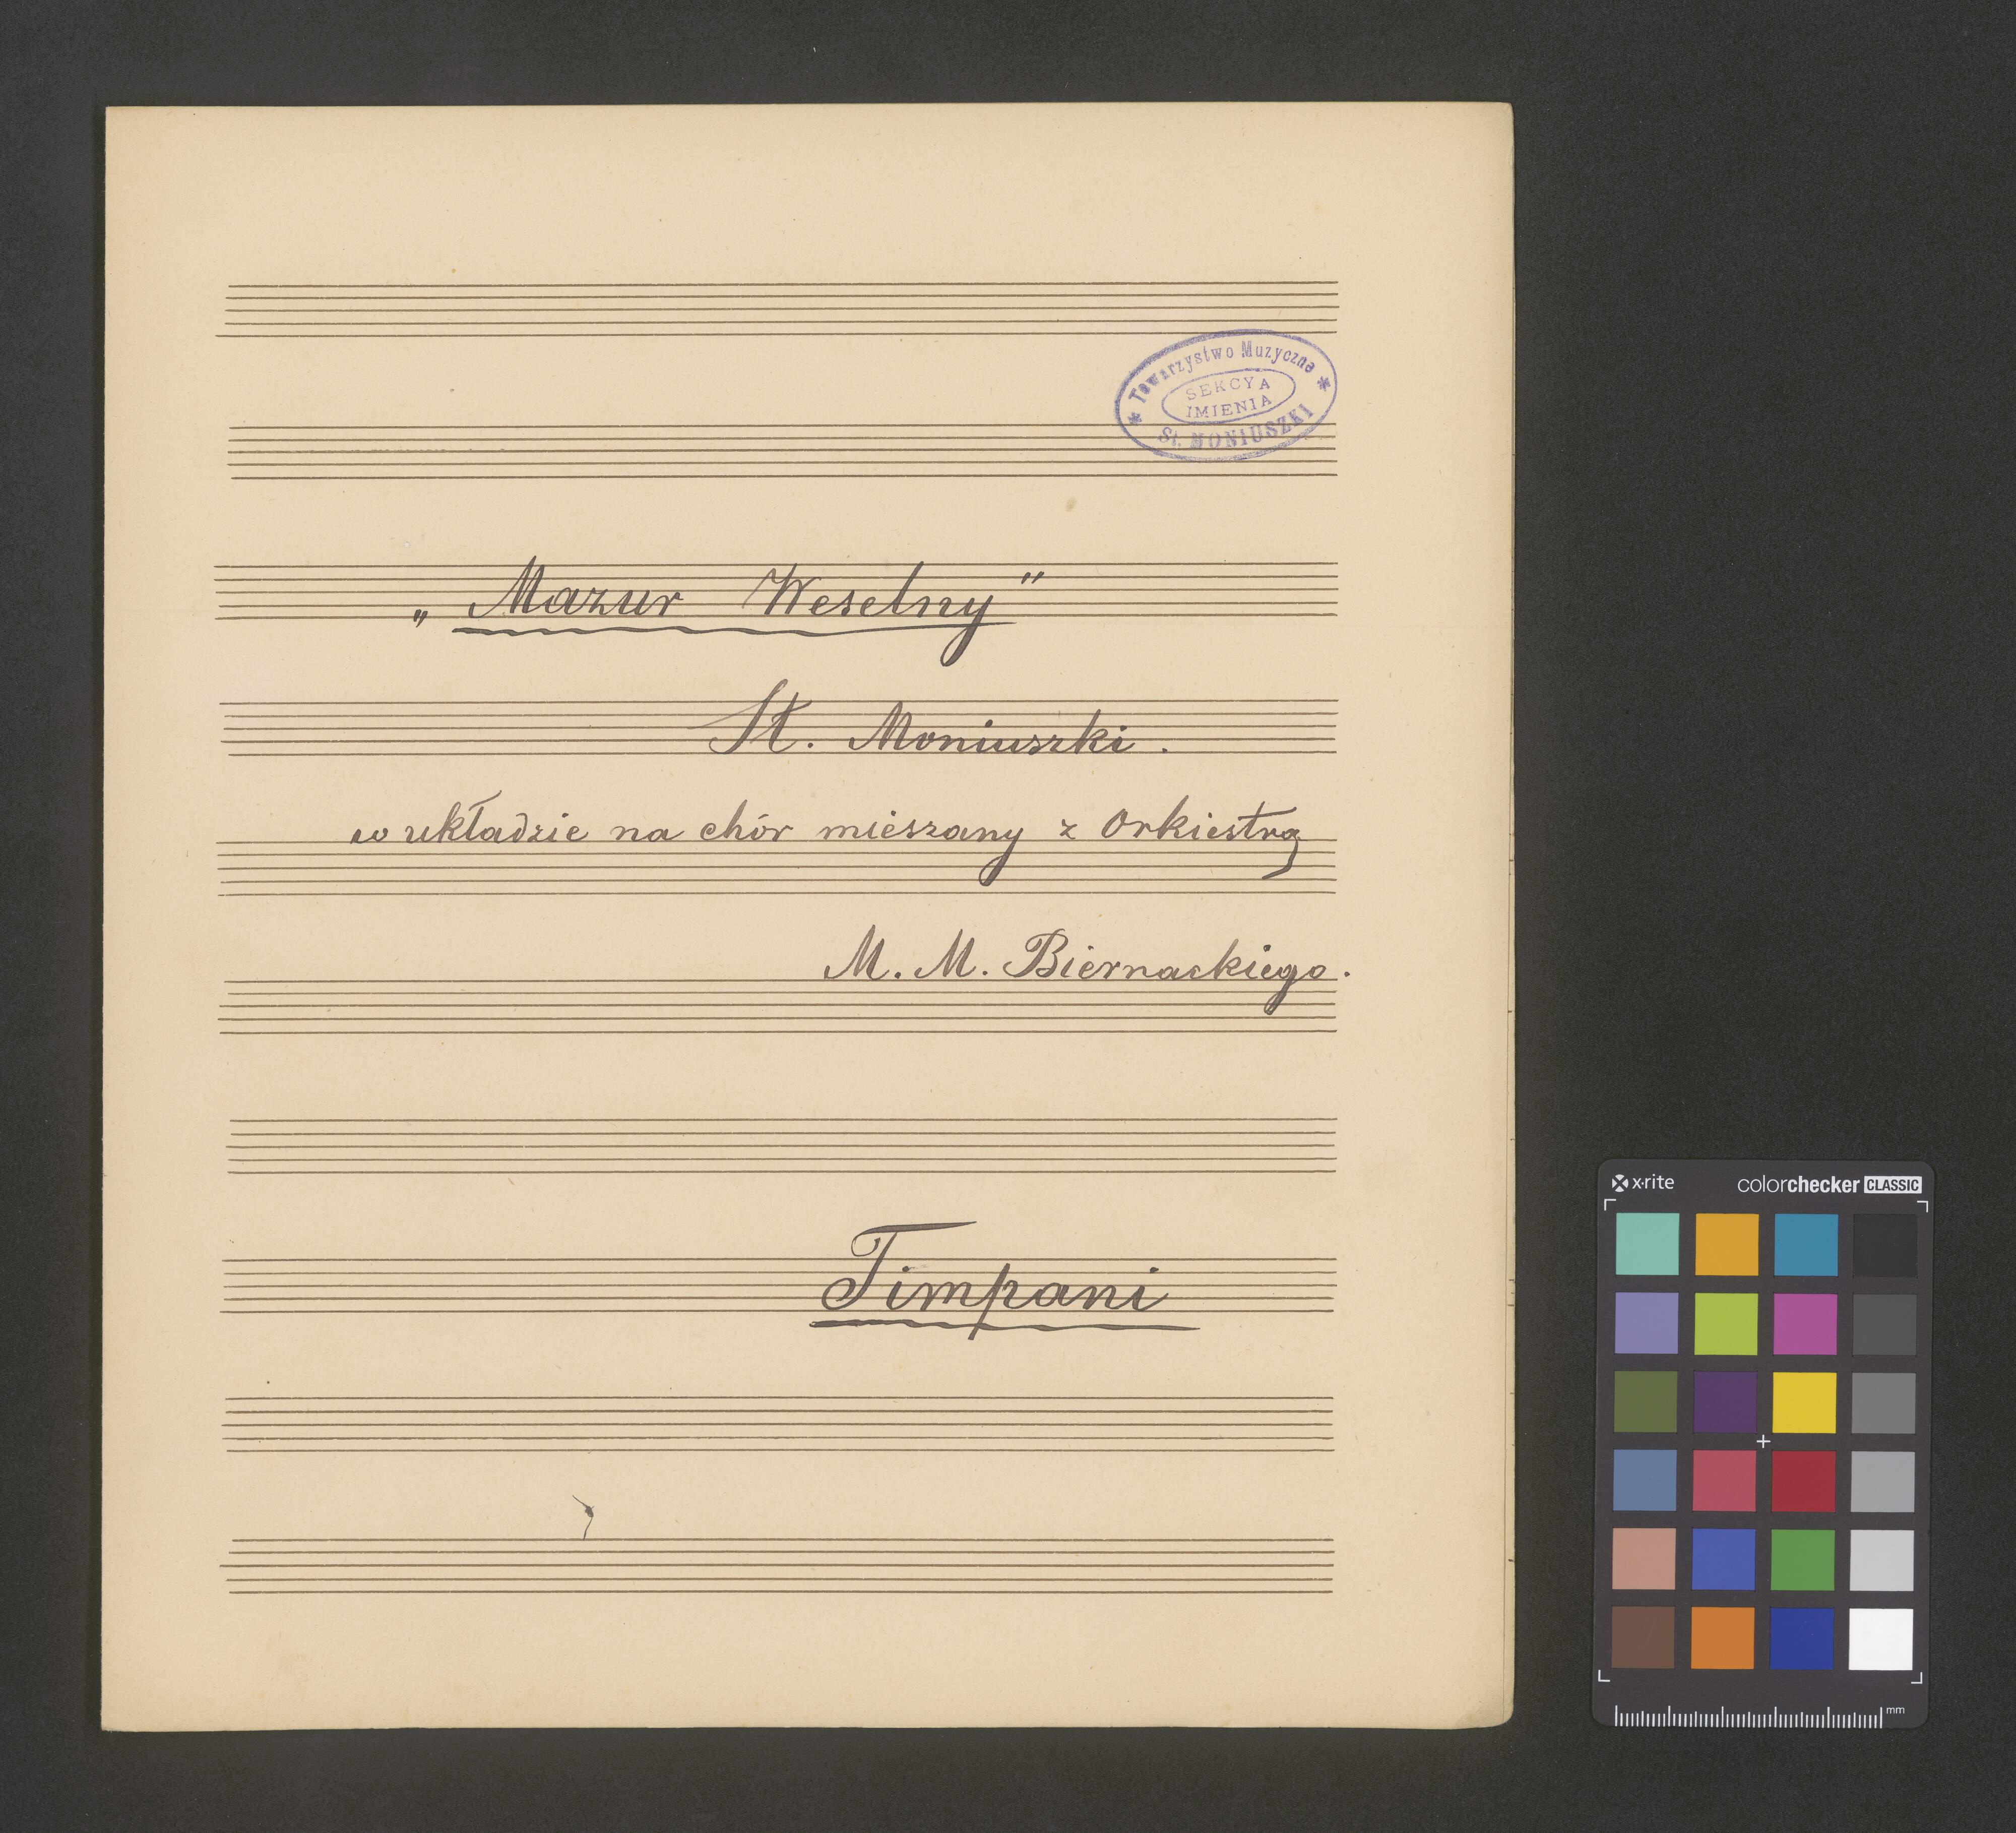 Towarzystwo Muzyczne
SEKCYA
IMIENIA
St. MONIUSZKI
„Mazur Weselny"
St. Moniuszki.
w układzie na chór mieszany z Orkiestrą
M. M. Biernackiego.
Timpani
x·rite colorchecker CLASSIC
mm